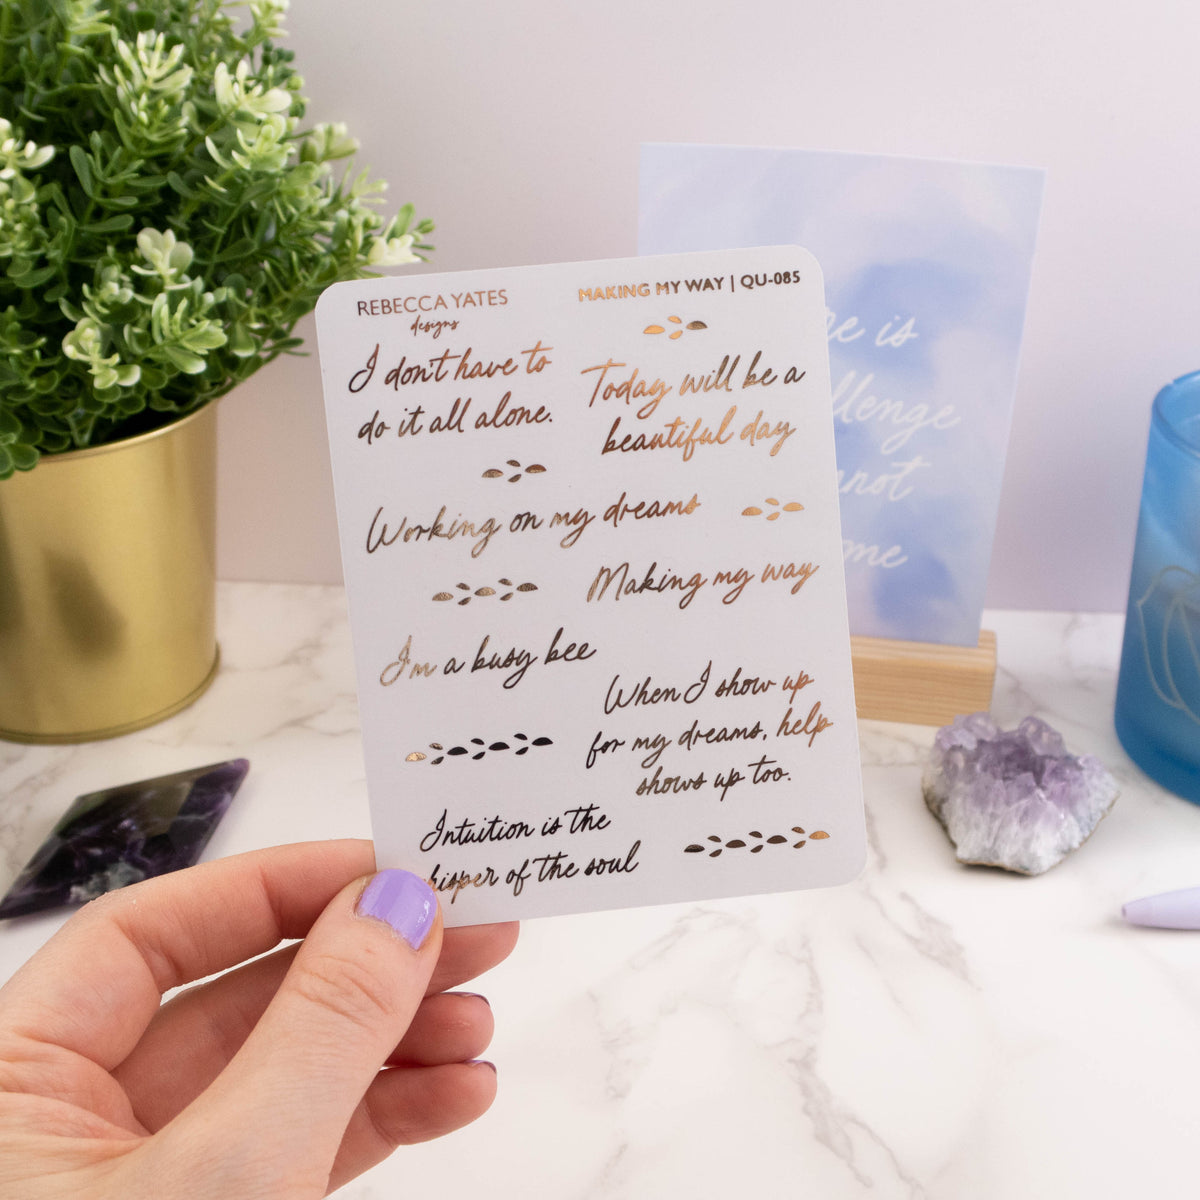 REBECCA YATES
designs
MAKING MY WAY | QU-085
I don't have to
do it all alone.
Today will be a
beautiful day
Working on my dreams
Making my way
I'm a busy bee
When I show up
for my dreams, help
shows up too.
Intuition is the
of the soul
is
not
me